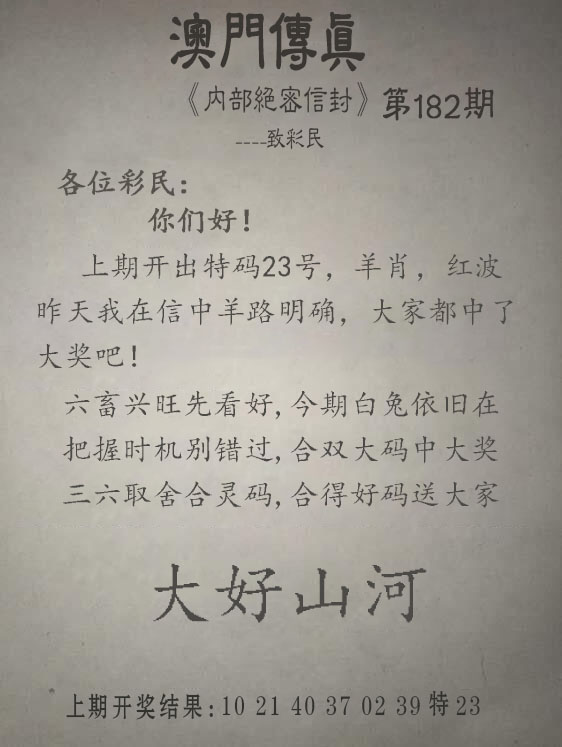 澳門傳眞
《内部絕密信封》第182期
----致彩民
各位彩民：
你们好！
上期开出特码23号，羊肖，红波
昨天我在信中羊路明确，大家都中了
大奖吧！
六畜兴旺先看好,今期白兔依旧在
把握时机别错过,合双大码中大奖
三六取舍合灵码,合得好码送大家
大好山河
上期开奖结果:10 21 40 37 02 39 特 23